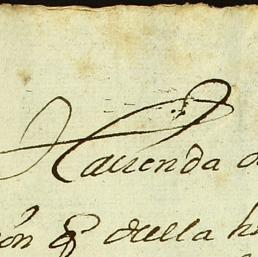 Hacienda d
ón q̃ della h